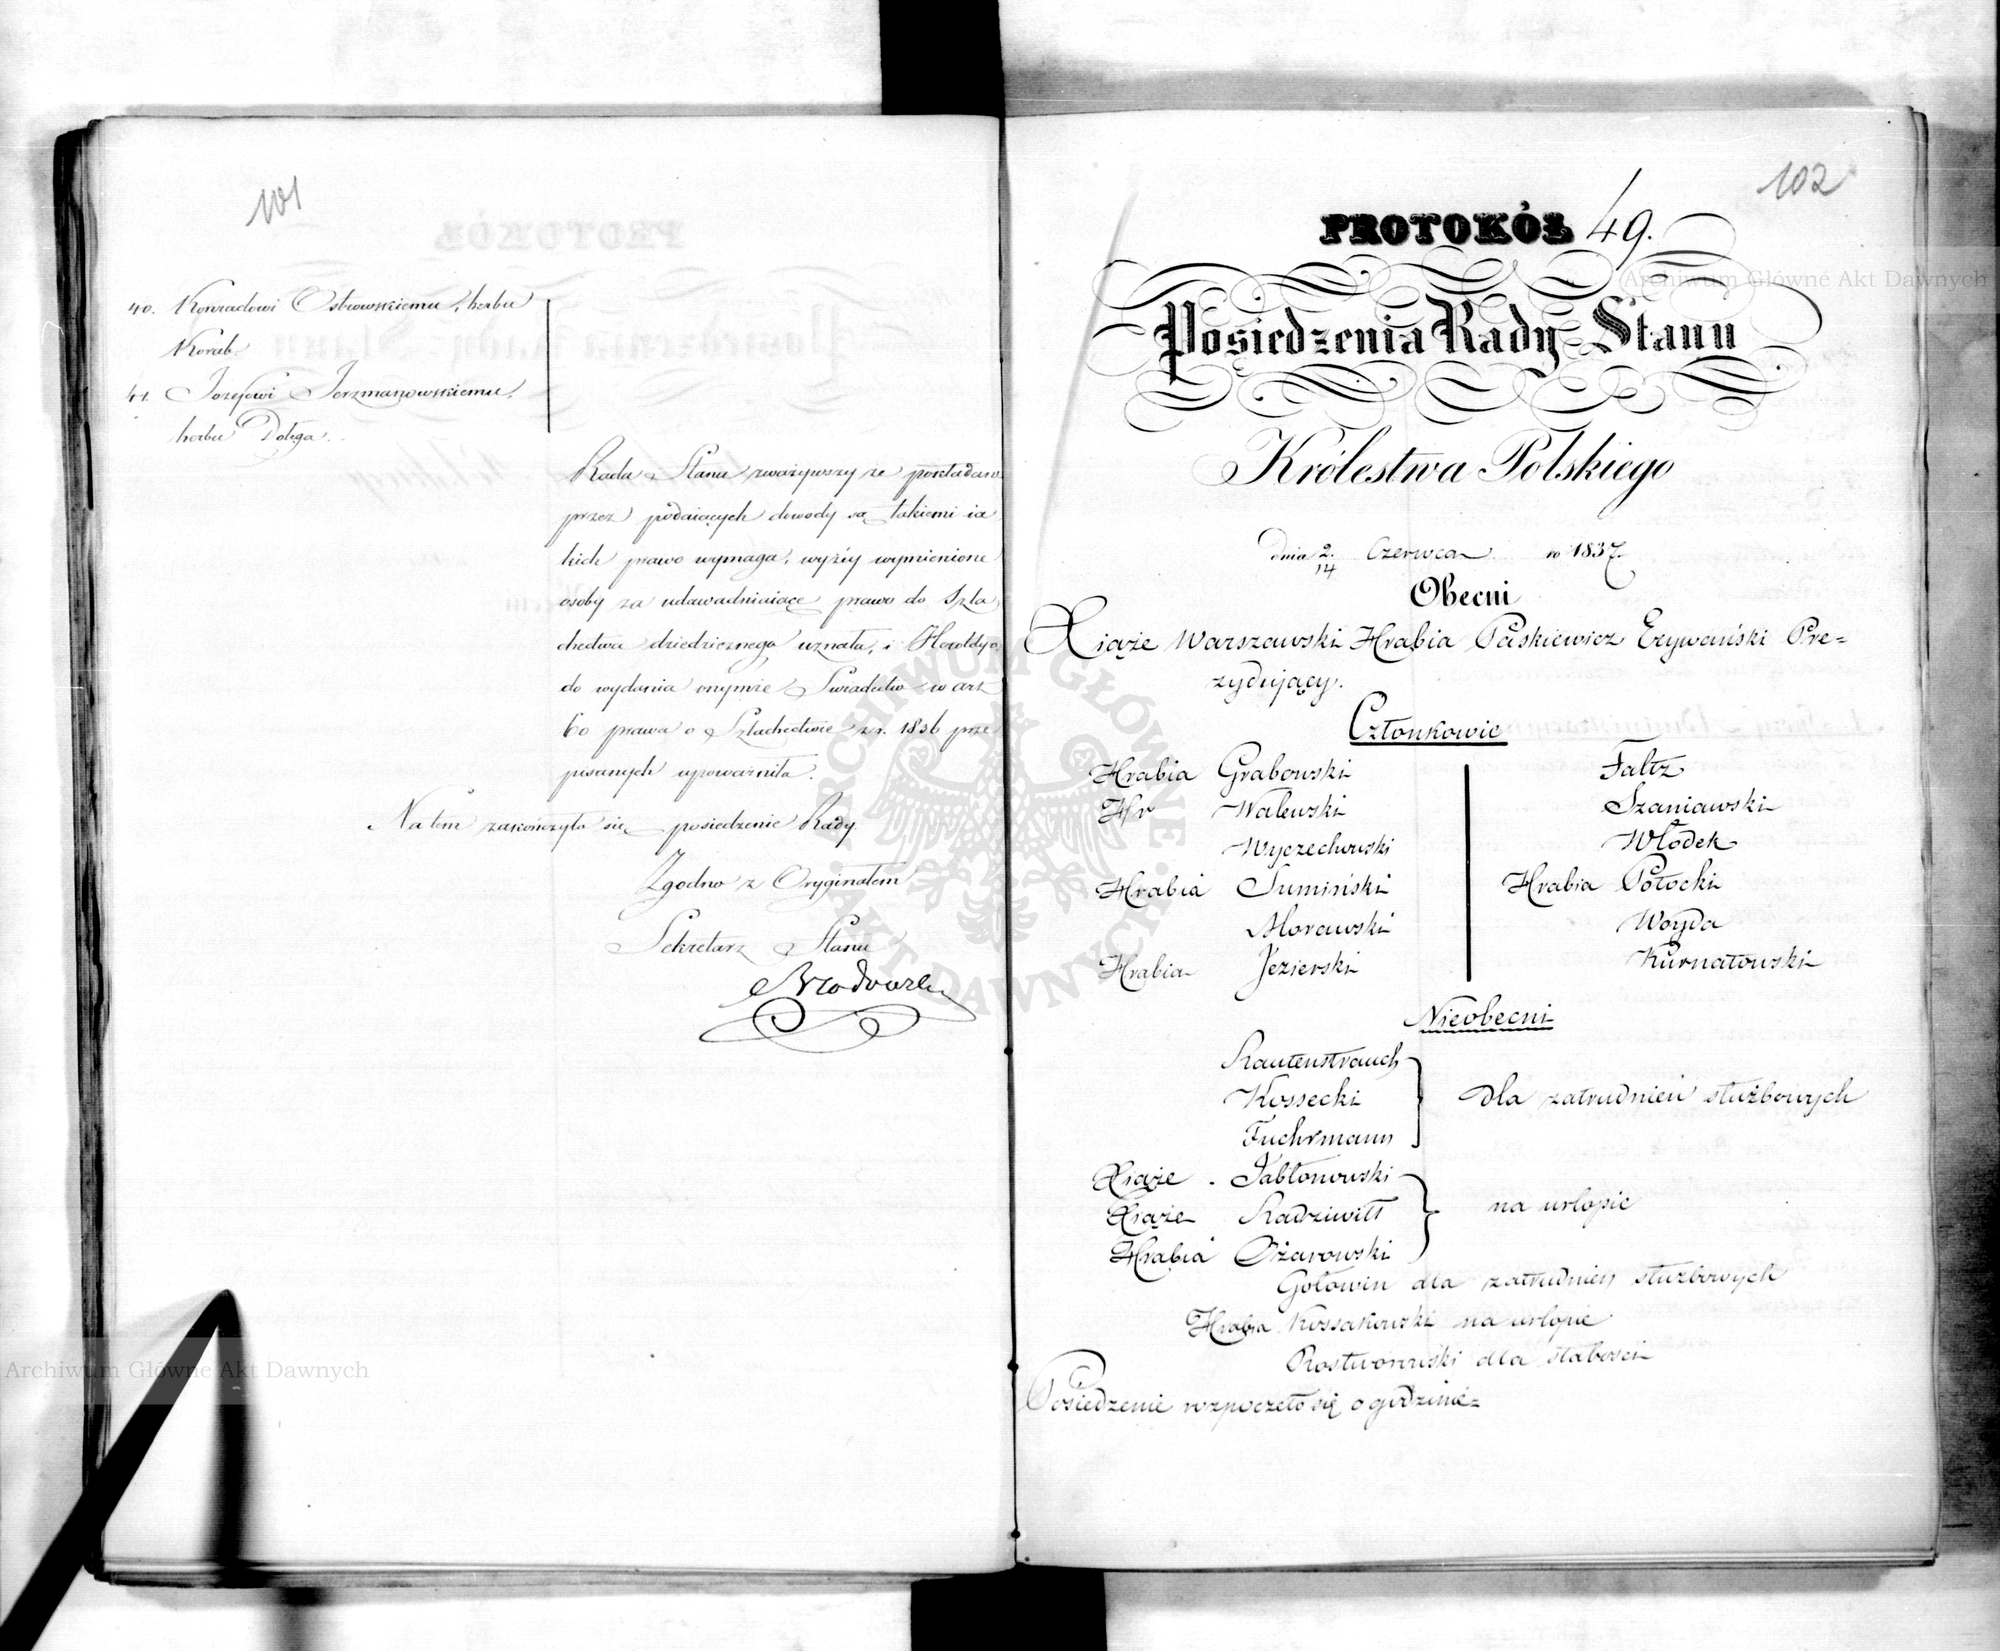 101
40. Konradowi Ostrowskiemu, herbu
Korab.
41. Jozefowi Jerzmanowskiemu,
herbu Dołęga.
Rada Stanu zważywszy że pokładane
przez podaiących dowody są takiemi ia
kich prawo wymaga, wyżéy wymienione
osoby za udawadniaiące prawo do Szla
chectwa dziedzicznego uznała, i Heroldyą
do wydania onymże Świadectw w art
60 prawa o Szlachectwie z r. 1836 prze
pisanych upoważniła.
Na tem zakończyło się posiedzenie Rady.
Zgodno z Oryginałem
Sekretarz Stanu
102
PROTOKÓŁ 49.
Posiedzenia Rady Stanu
Królestwa Polskiego
dnia 2./14 Czerwca ro 1837.
Obecni
Xiąże Warszawski Hrabia Paskiewicz Erywański Pre=
zydujący.
Członkowie
Hrabia Grabowski
Hr Walewski
Wyczechowski
Hrabia Sumiński
Morawski
Hrabia Jezierski
Faltz
Szaniawski
Włodek
Hrabia Potocki
Woyda
Kurnatowski
Nieobecni
Rautenstrauch
Kossecki
Fuchrmann
dla zatrudnień służbowych
Xiąże Jabłonowski
Xiąże Radziwiłł
Hrabia Ożarowski
na urlopie
Gołowin dla zatrudnień służbowych
Hrabia Kossakowski na urlopie
Rostworowski dla słabości
Posiedzenie rozpoczęło się o godzinie=
Archiwum Główne Akt Dawnych
Archiwum Główne Akt Dawnych
ARCHIWUM GŁÓWNE AKT DAWNYCH